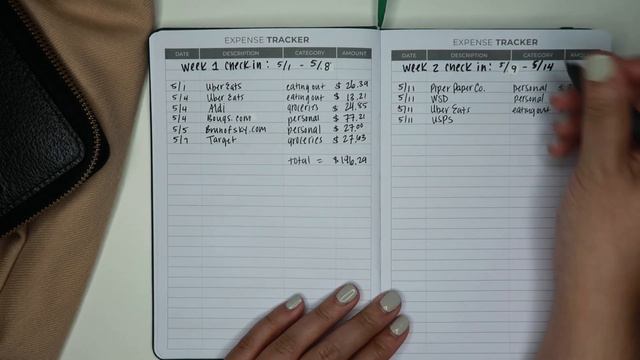 EXPENSE TRACKER
DATE DESCRIPTION CATEGORY AMOUNT
Week 1 check in: 5/1 - 5/8
5/1 Uber Eats eating out $ 26.39
5/4 Uber Eats eating out $ 13.21
5/4 Aldi groceries $ 24.85
5/4 Bouqs.com personal $ 77.21
5/5 personal $ 27.00
5/7 Target groceries $ 27.63
total = $196.29
EXPENSE TRACKER
DATE DESCRIPTION CATEGORY
Week 2 check in: 5/9 - 5/14
5/11 Piper Paper Co. personal $
5/11 WSD personal
5/11 Uber Eats eating out
5/11 USPS